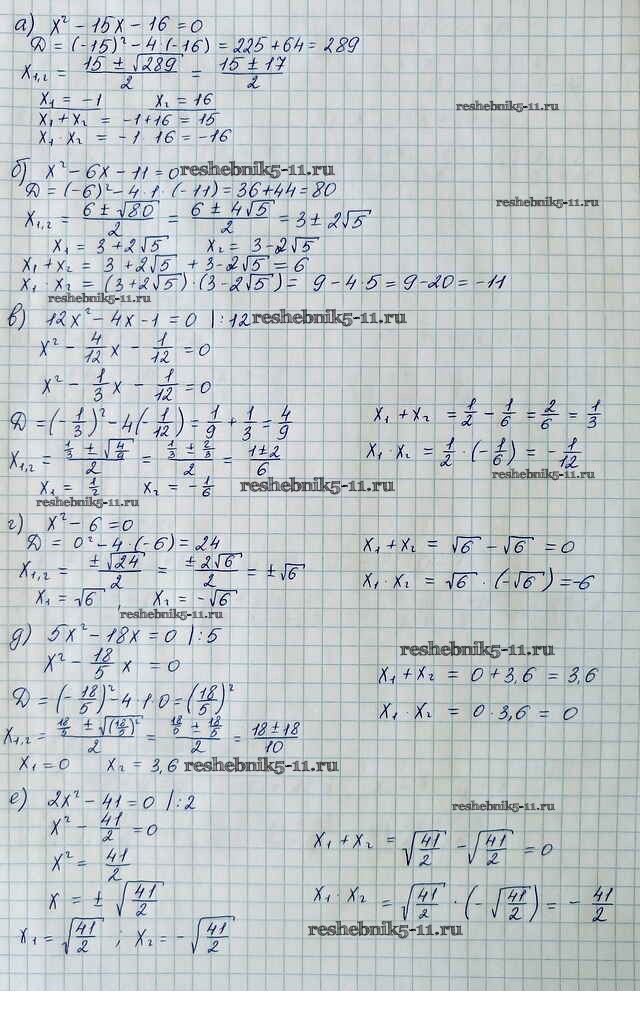 а) x² - 15x - 16 = 0
Д = (-15)² - 4·(-16) = 225 + 64 = 289
x₁,₂ = (15 ± √289)/2 = (15 ± 17)/2
x₁ = -1 x₂ = 16
reshebnik5-11.ru
x₁ + x₂ = -1 + 16 = 15
x₁ · x₂ = -1 · 16 = -16
б) x² - 6x - 11 = 0 reshebnik5-11.ru
Д = (-6)² - 4·1·(-11) = 36 + 44 = 80
reshebnik5-11.ru
x₁,₂ = (6 ± √80)/2 = (6 ± 4√5)/2 = 3 ± 2√5
x₁ = 3 + 2√5 x₂ = 3 - 2√5
x₁ + x₂ = 3 + 2√5 + 3 - 2√5 = 6
x₁ · x₂ = (3 + 2√5)·(3 - 2√5) = 9 - 4·5 = 9 - 20 = -11
reshebnik5-11.ru
в) 12x² - 4x - 1 = 0 |:12 reshebnik5-11.ru
x² - 4/12 x - 1/12 = 0
x² - 1/3 x - 1/12 = 0
Д = (-1/3)² - 4(-1/12) = 1/9 + 1/3 = 4/9
x₁,₂ = (1/3 ± √(4/9))/2 = (1/3 ± 2/3)/2 = (1 ± 2)/6
x₁ = 1/2 x₂ = -1/6 reshebnik5-11.ru
reshebnik5-11.ru
x₁ + x₂ = 1/2 - 1/6 = 2/6 = 1/3
x₁ · x₂ = 1/2 · (-1/6) = -1/12
reshebnik5-11.ru
г) x² - 6 = 0
Д = 0² - 4·(-6) = 24
x₁,₂ = ±√24/2 = ±2√6/2 = ±√6
x₁ = √6 , x₂ = -√6
reshebnik5-11.ru
x₁ + x₂ = √6 - √6 = 0
x₁ · x₂ = √6 · (-√6) = -6
д) 5x² - 18x = 0 |:5
x² - 18/5 x = 0
Д = (-18/5)² - 4·1·0 = (18/5)²
x₁,₂ = (18/5 ± √(18/5)²)/2 = (18/5 ± 18/5)/2 = (18 ± 18)/10
x₁ = 0 x₂ = 3,6 reshebnik5-11.ru
reshebnik5-11.ru
x₁ + x₂ = 0 + 3,6 = 3,6
x₁ · x₂ = 0 · 3,6 = 0
е) 2x² - 41 = 0 |:2
x² - 41/2 = 0
x² = 41/2
x = ± √(41/2)
x₁ = √(41/2) ; x₂ = -√(41/2)
reshebnik5-11.ru
x₁ + x₂ = √(41/2) - √(41/2) = 0
x₁ · x₂ = √(41/2) · (-√(41/2)) = - 41/2
reshebnik5-11.ru